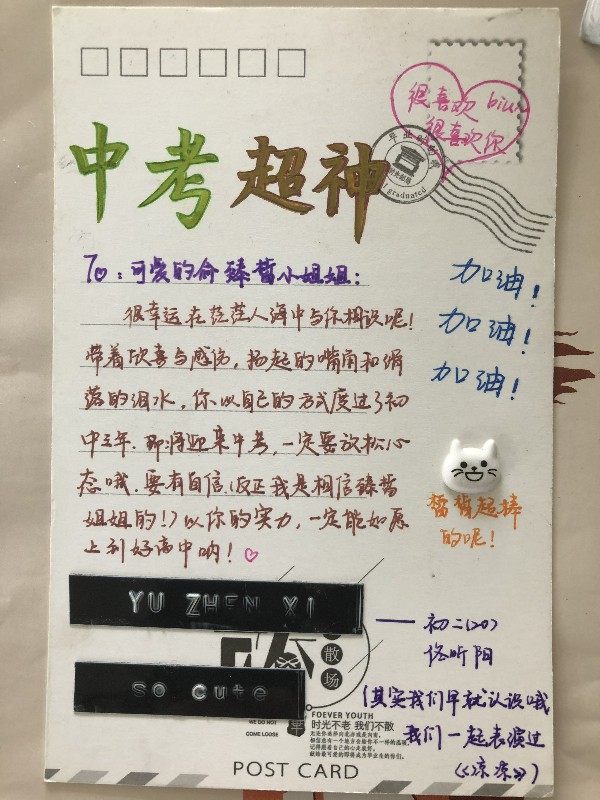 很喜欢 biu~
很喜欢你
毕业时光
时光邮局
graduated
中考超神
To：可爱的俞臻皙小姐姐：
很幸运在茫茫人海中与你相识呢！
带着欣喜与感伤，扬起的嘴角和滑
落的泪水，你以自己的方式度过了初
中三年。即将迎来中考，一定要放松心
态哦，要有自信（反正我是相信臻皙
姐姐的！）以你的实力，一定能如愿
上到好高中呐！
加油！
加油！
加油！
皙皙超棒
的呢！
YU ZHEN XI
SO CUTE
初二(20)
佟昕阳
（其实我们早就认识哦
我们一起表演过
《凉凉》）
散场
WE DO NOT
COME LOOSE
FOEVER YOUTH
时光不老 我们不散
POST CARD